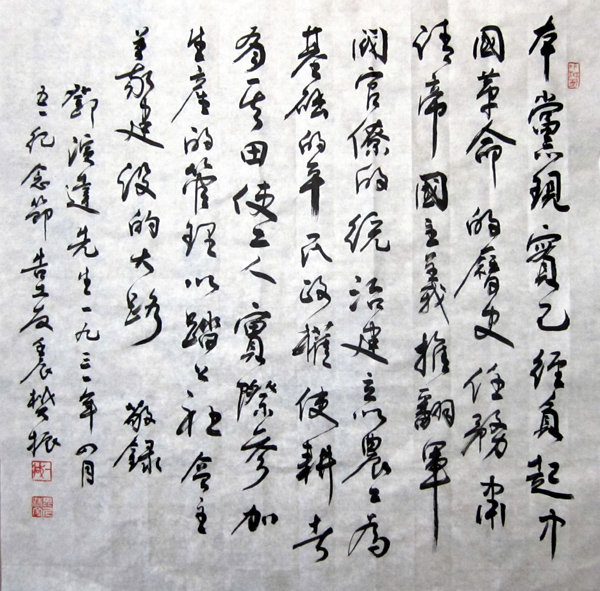 本黨現實已經負起中
國革命的歷史任務肅
清帝國主義推翻軍
閥官僚的統治建立以農工為
基礎的平民政權使耕者
有其田使工人實際參加
生產的管理以踏上社會主
義建設的大路 敬錄
鄧演達先生一九三一年四月
五一紀念節告工友 樊振